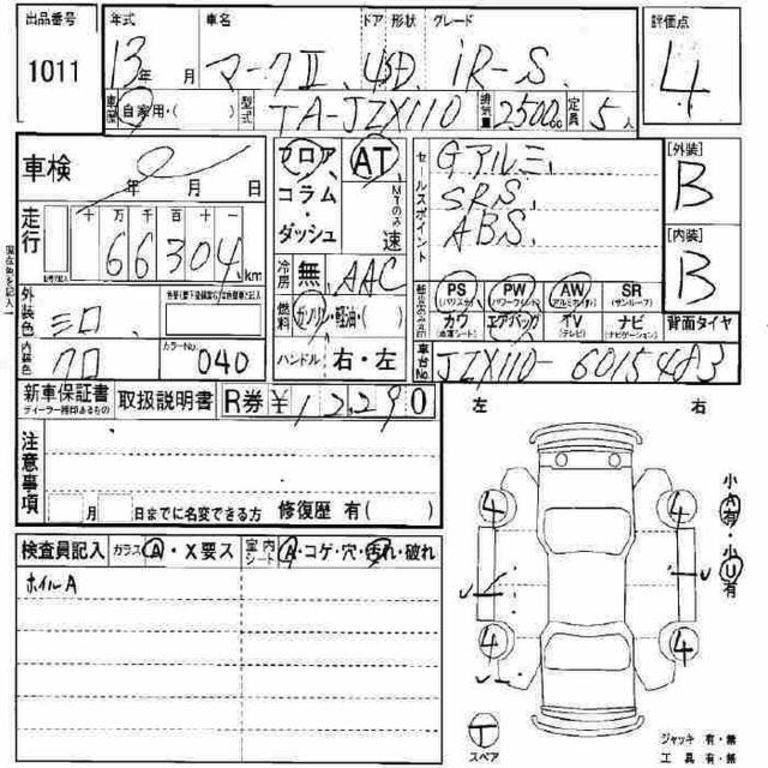 出品番号 年式 車名 ドア 形状 グレード 評価点
1011 13年 月 マークII 4D iR-S 4
車歴 自家用・( ) 型式 TA-JZX110 排気量 2500cc 定員 5人
車検 年 月 日
フロア AT
コラム・ダッシュ MTのみ 速
セールスポイント Gアルミ、
SRS、
ABS、
[外装] B
[内装] B
走行 十万千百十一
66304 km
冷房 無 AAC
燃料 ガソリン・軽油・( )
ハンドル 右・左
外装色 シロ
内装色 クロ
カラーNo. 040
PS (パワステ) PW (パワーウィンド) AW (アルミホイル) SR (サンルーフ)
カワ (本革シート) エアバッグ TV (テレビ) ナビ (ナビゲーション) 背面タイヤ
車台No. JZX110-6015483
新車保証書 ディーラー捺印あるもの 取扱説明書 R券 ¥12290
左 右
注意事項
月 日までに名変できる方 修復歴 有( )
検査員記入 ガラス A・X要ス 室内シート A・コゲ・穴・汚れ・破れ
ホイルA
4 4
4 4
小A有・小U有
T
スペア
ジャッキ 有・無
工具 有・無